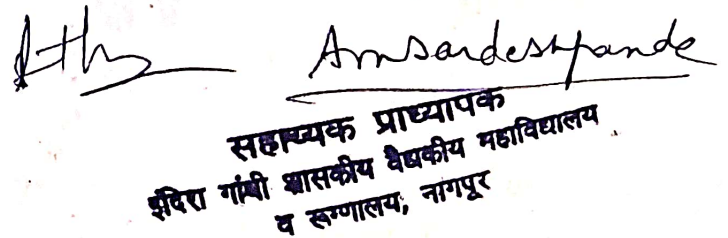 Amsardeshpande
सहाय्यक प्राध्यापक
इंदिरा गांधी शासकीय वैद्यकीय महाविद्यालय
व रूग्णालय, नागपूर